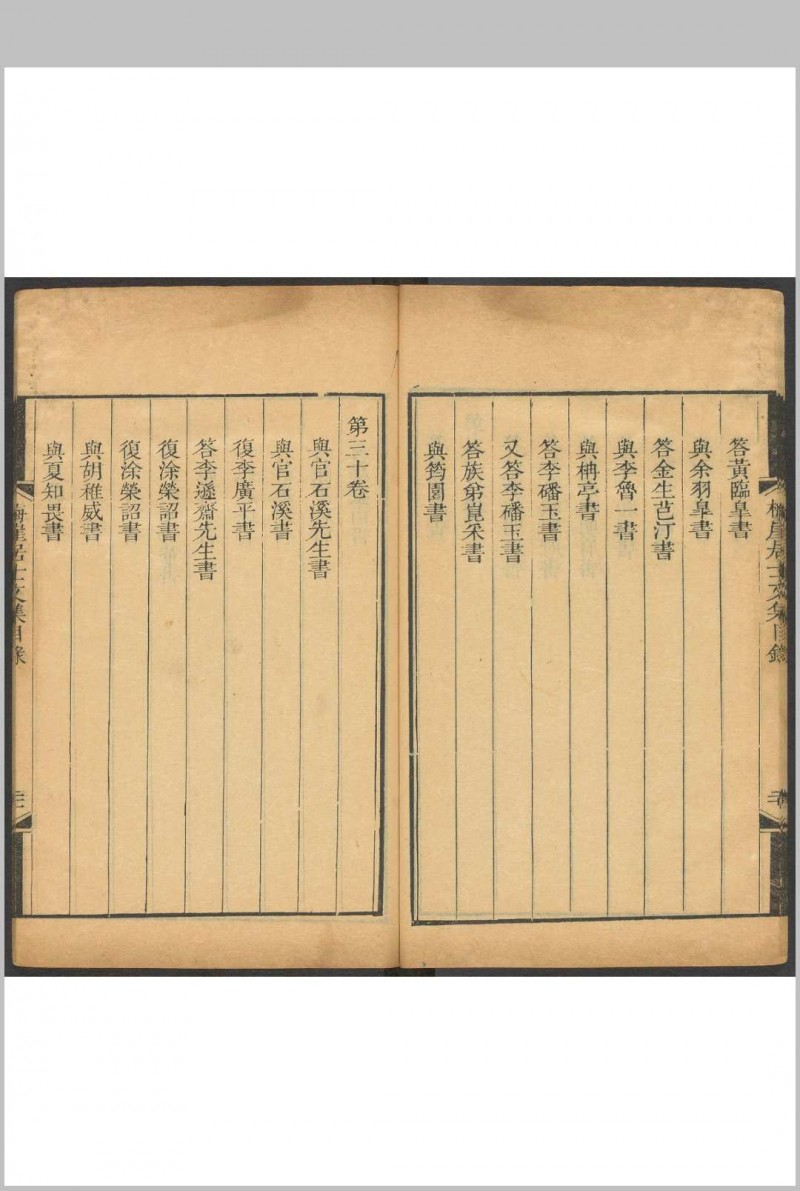 答黃臨皐書
與余羽皐書
答金生芑汀書
與李魯一書
與楠亭書
答李磻玉書
又答李磻玉書
答族弟崑采書
與筠園書
第三十卷
與官石溪先生書
與官石溪書
復李廣平書
答李遜齋先生書
復涂榮詔書
復涂榮詔書
與胡稚威書
與夏知畏書
梅崖居士文集目錄